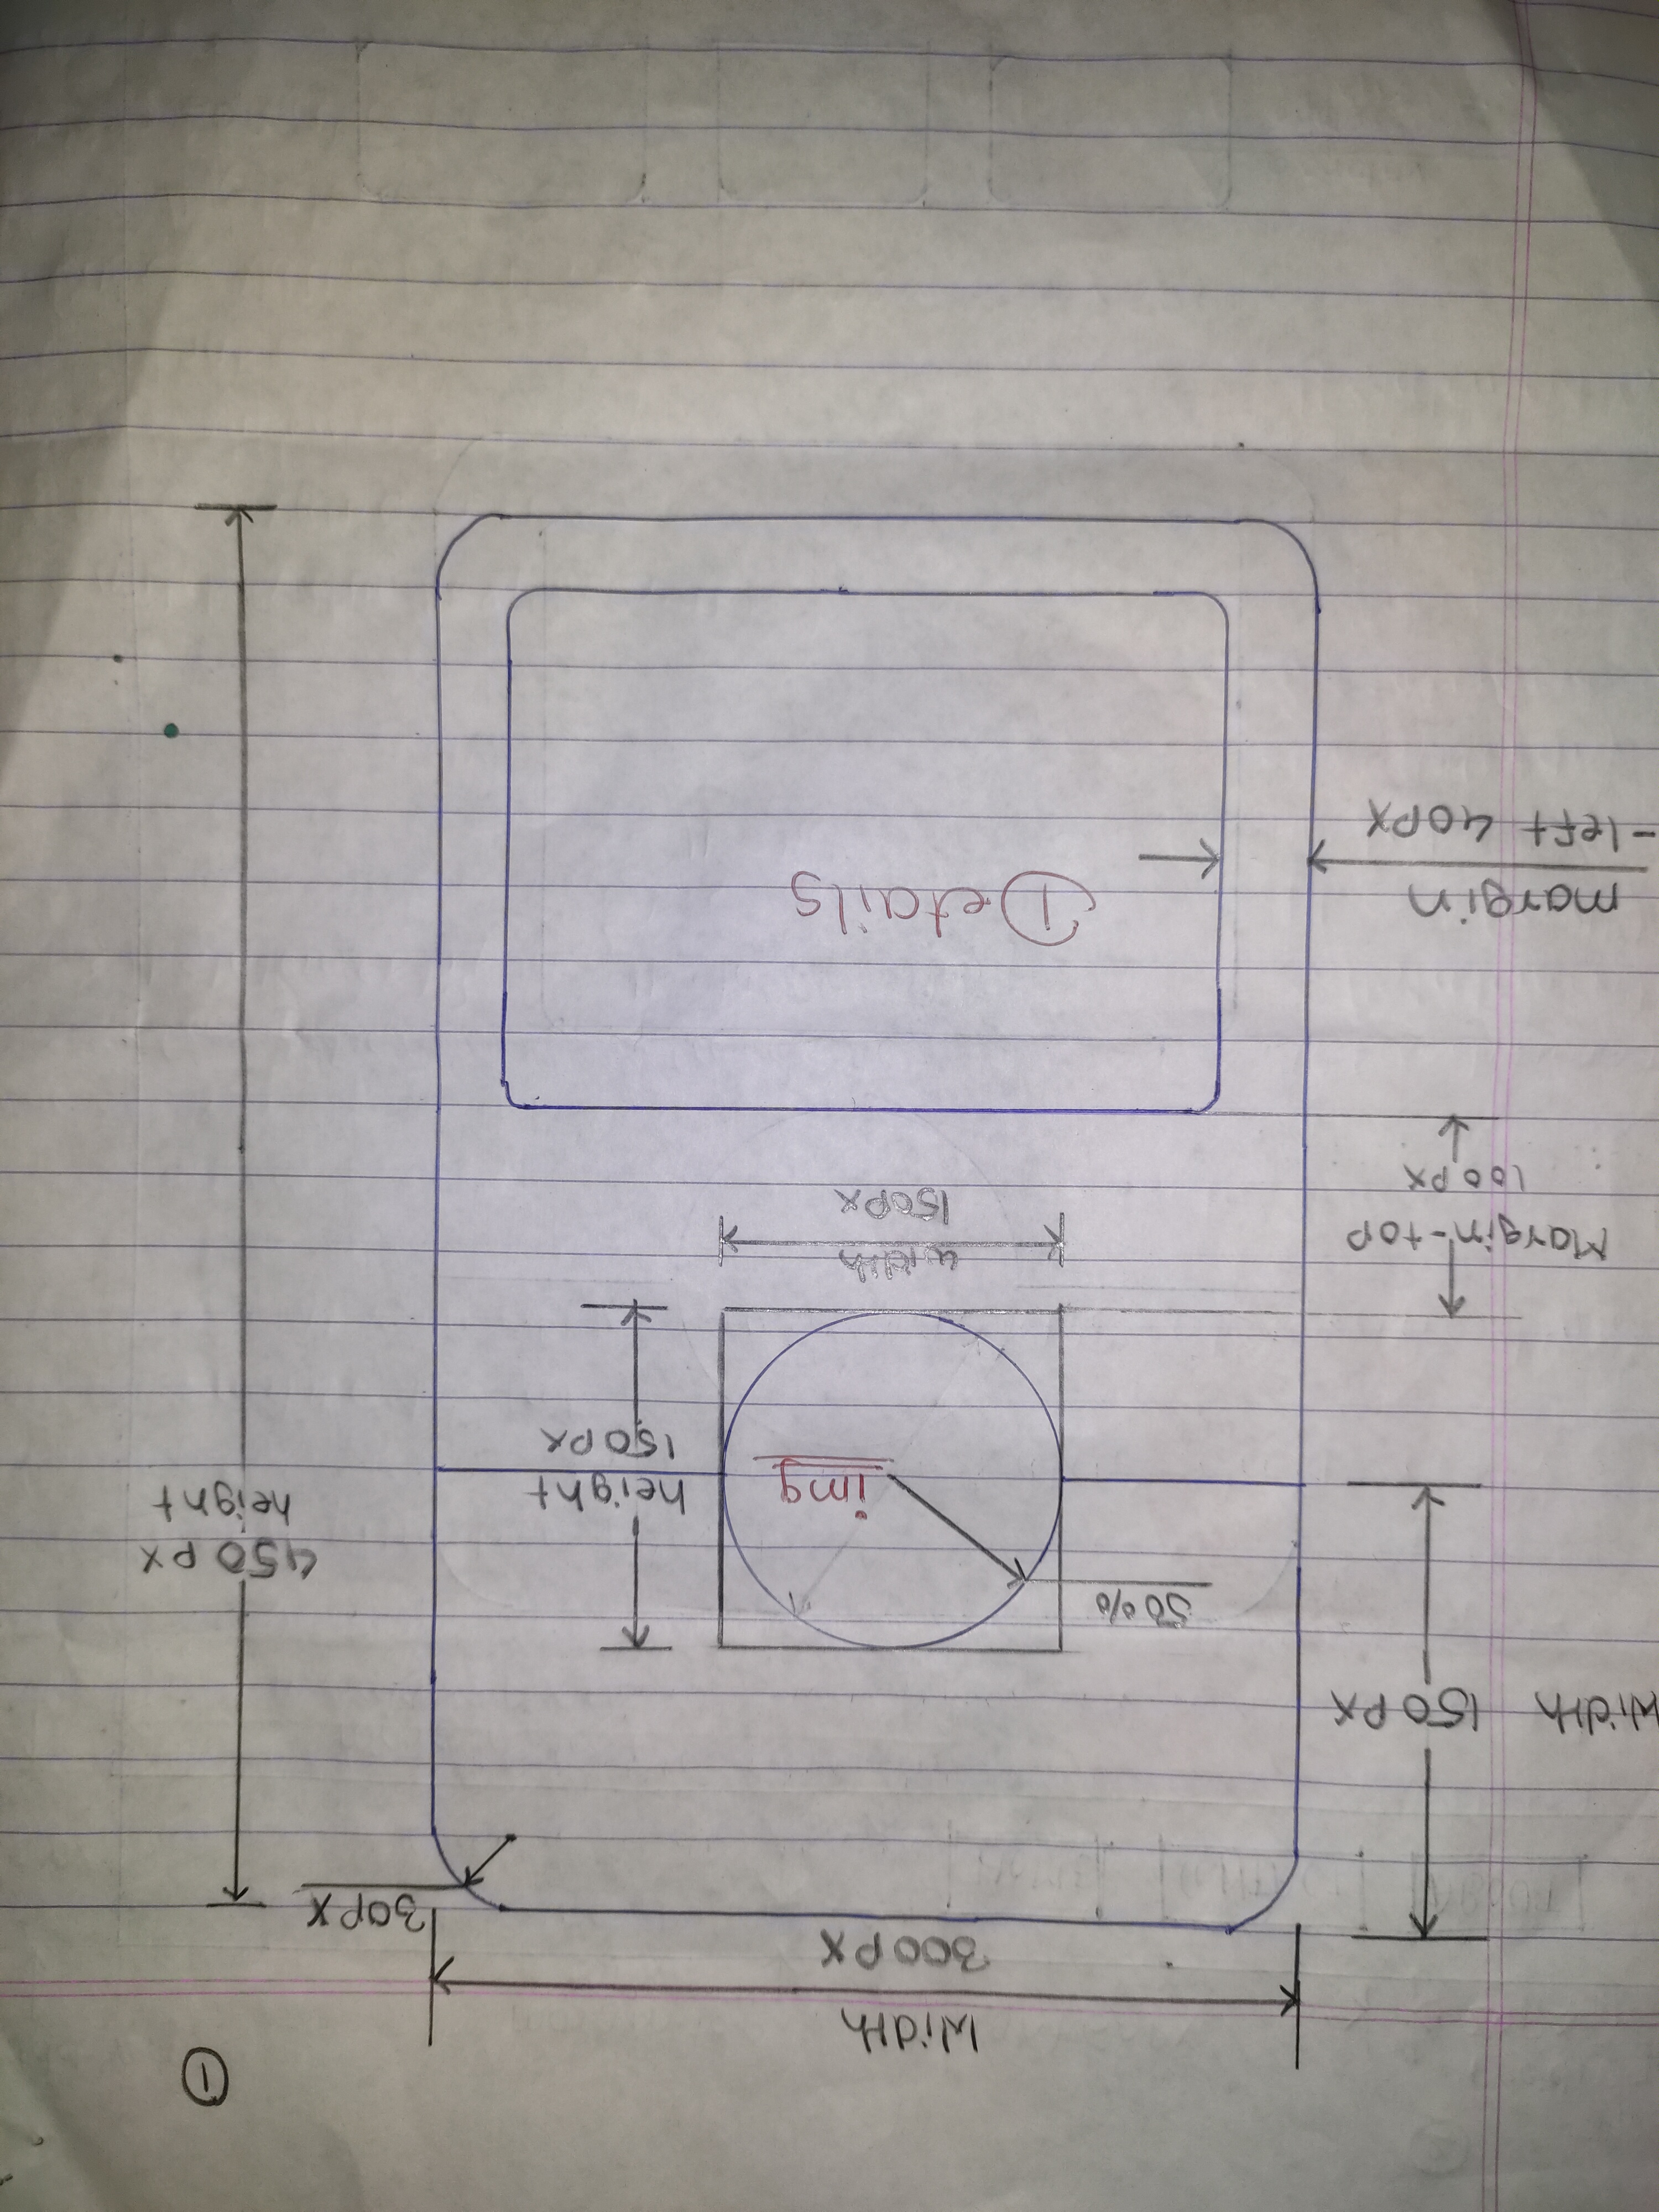 1
Width
300PX
30PX
Width 150PX
50%
img
height
150PX
450PX
height
width
150PX
Margin-top
100PX
Details
margin
-left 40PX